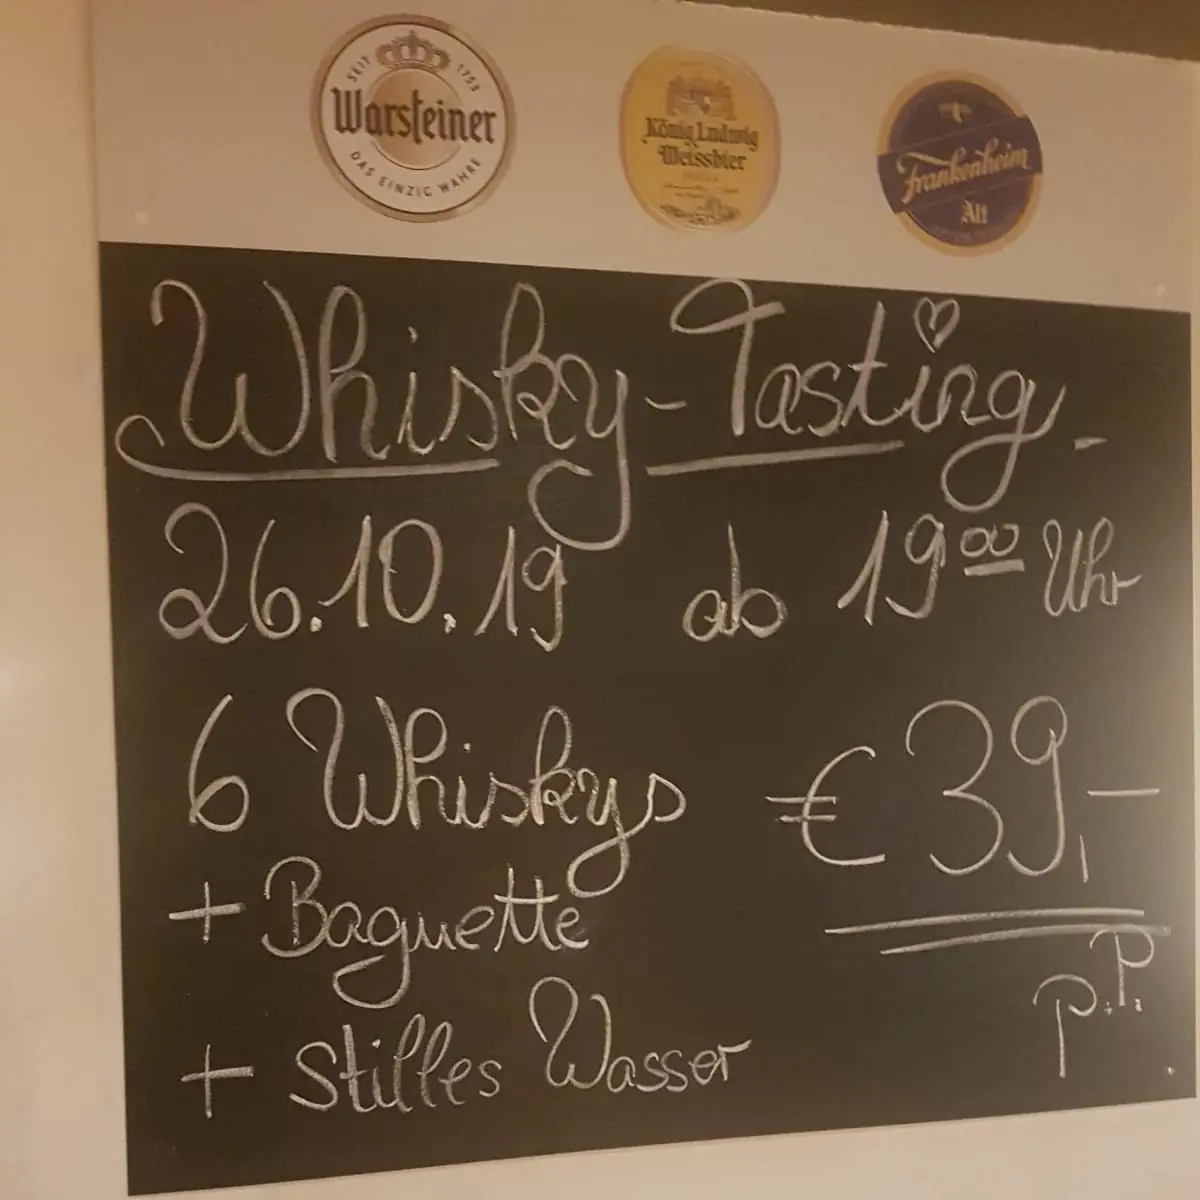 SEIT 1753
Warsteiner
DAS EINZIG WAHRE
König Ludwig
Weissbier
Frankenheim
Alt
Whisky-Tasting-
26.10.19 ab 19⁰⁰ Uhr
6 Whiskys € 39,-
+ Baguette
p.P.
+ Stilles Wasser